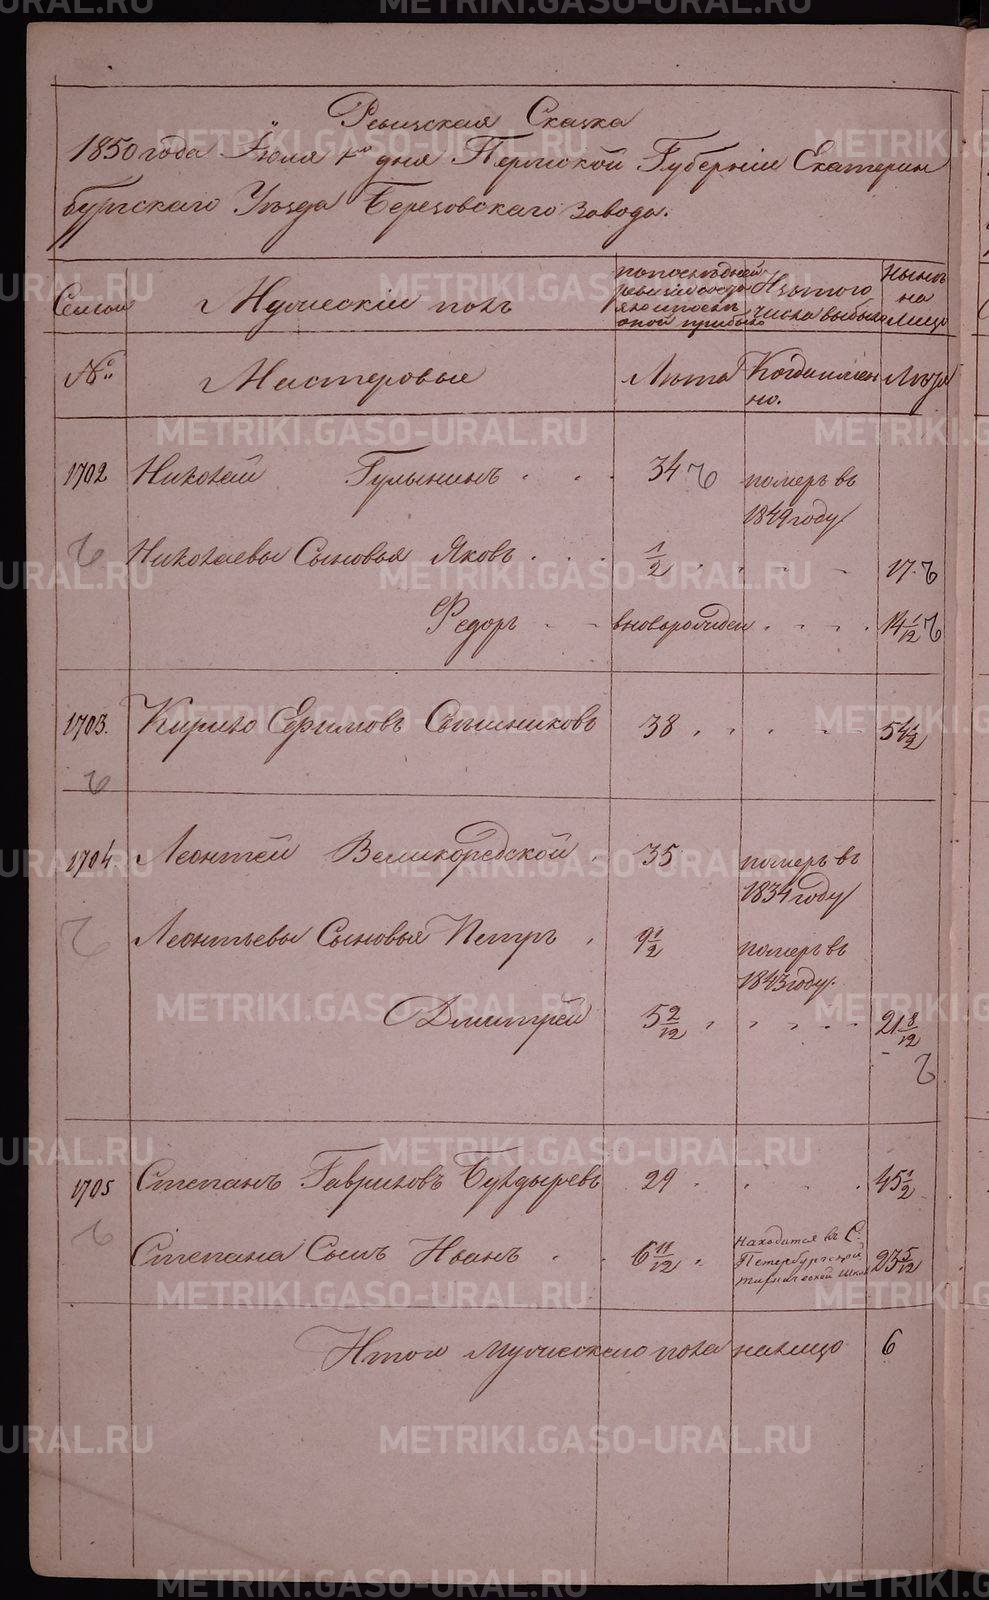 Ревизская Сказка
1850 года Июля 1го дня Пермской Губерніи Екатерин
бургскаго Уезда Березовскаго завода.
Семьи Мужескій полъ по последней ревизіи состояло и после оной прибыло Изъ того числа выбыло Ныне на лицо
№ Мастеровые Лета Когда именно. Лета
1702 Николай Гулынинъ 34 померъ въ 1849 году
Николаевы Сыновья Яковъ 1/2 17
Федоръ вноворожден 14 1/12
1703. Кирило Ефимовъ 38 54 1/2
1704 Леонтей Великоредской 35 померъ въ 1834 году
Леонтьевы Сыновья Петръ 9 1/2 померъ въ 1843 году.
Дмитрей 5 2/12 21 8/12
1705 Степанъ Гавриловъ Булдыревъ 29 45 1/2
Степана Сынъ Иванъ 6 11/12 Находится въ С. Петербургской 23 5/12
Итого мужескаго пола налицо 6
METRIKI.GASO-URAL.RU